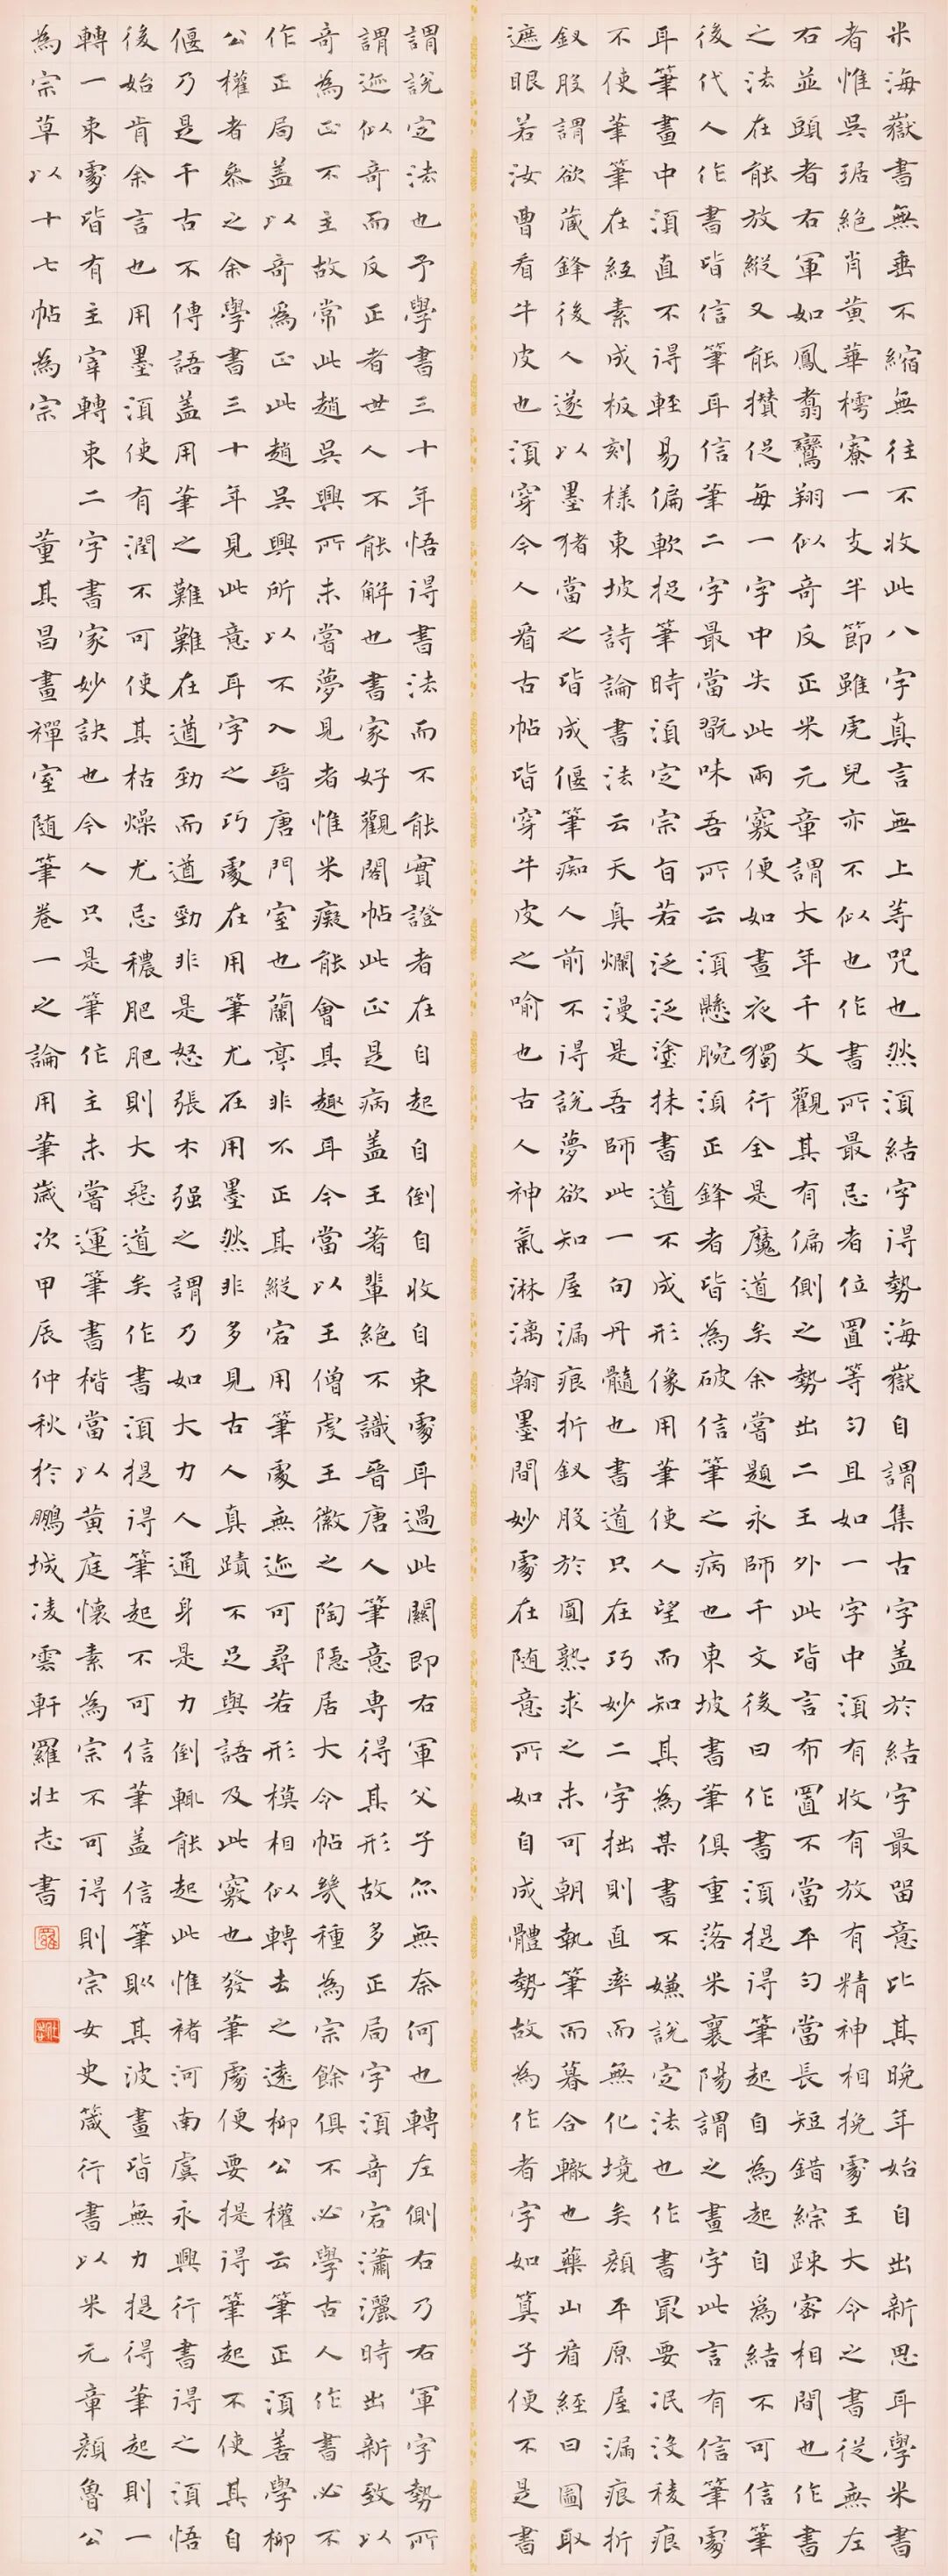 米海嶽書無垂不縮無往不收此八字真言無上等咒也然須結字得勢海嶽自謂集古字蓋於結字最留意比其晚年始自出新思耳學米書
者惟吳琚絕肖黃華樗寮一支半節雖虎兒亦不似也作書所最忌者位置等勻且如一字中須有收有放有精神相挽處王大令之書從無左
右並頭者右軍如鳳翥鸞翔似奇反正米元章謂大年千文觀其有偏側之勢出二王外此皆言布置不當平勻當長短錯綜踈密相間也作書
之法在能放縱又能攢促每一字中失此兩竅便如晝夜獨行全是魔道矣余嘗題永師千文後曰作書須提得筆起自為起自為結不可信筆
後代人作書皆信筆耳信筆二字最當翫味吾所云須懸腕須正鋒者皆為破信筆之病也東坡書筆俱重落米襄陽謂之畫字此言有信筆處
耳筆畫中須直不得輕易偏軟捉筆時須定宗旨若泛泛塗抹書道不成形像用筆使人望而知其為某書不嫌說定法也作書最要泯沒稜痕
不使筆筆在紙素成板刻樣東坡詩論書法云天真爛漫是吾師此一句丹髓也書道只在巧妙二字拙則直率而無化境矣顏平原屋漏痕折
釵股謂欲藏鋒後人遂以墨猪當之皆成偃筆痴人前不得說夢欲知屋漏痕折釵股於圓熟求之未可朝執筆而暮合轍也藥山看經曰圖取
遮眼若汝曹看牛皮也須穿今人看古帖皆穿牛皮之喻也古人神氣淋漓翰墨間妙處在隨意所如自成體勢故為作者字如算子便不是書
謂說定法也予學書三十年悟得書法而不能實證者在自起自倒自收自束處耳過此關即右軍父子亦無奈何也轉左側右乃右軍字勢所
謂迹似奇而反正者世人不能解也書家好觀閣帖此正是病蓋王著輩絕不識晉唐人筆意專得其形故多正局字須奇宕瀟灑時出新致以
奇為正不主故常此趙吳興所未嘗夢見者惟米癡能會其趣耳今當以王僧虔王徽之陶隱居大令帖幾種為宗餘俱不必學古人作書必不
作正局蓋以奇為正此趙吳興所以不入晉唐門室也蘭亭非不正其縱宕用筆處無迹可尋若形模相似轉去之遠柳公權云筆正須善學柳
公權者參之余學書三十年見此意耳字之巧處在用筆尤在用墨然非多見古人真蹟不足與語及此竅也發筆處便要提得筆起不使其自
偃乃是千古不傳語蓋用筆之難難在遒勁而遒勁非是怒張木强之謂乃如大力人通身是力倒輒能起此惟褚河南虞永興行書得之須悟
後始肯余言也用墨須使有潤不可使其枯燥尤忌穠肥肥則大惡道矣作書須提得筆起不可信筆蓋信筆則其波畫皆無力提得筆起則一
轉一束處皆有主宰轉束二字書家妙訣也今人只是筆作主未嘗運筆書楷當以黃庭懷素為宗不可得則宗女史箴行書以米元章顏魯公
為宗草以十七帖為宗 董其昌畫禪室隨筆卷一之論用筆歲次甲辰仲秋於鵬城凌雲軒羅壯志書